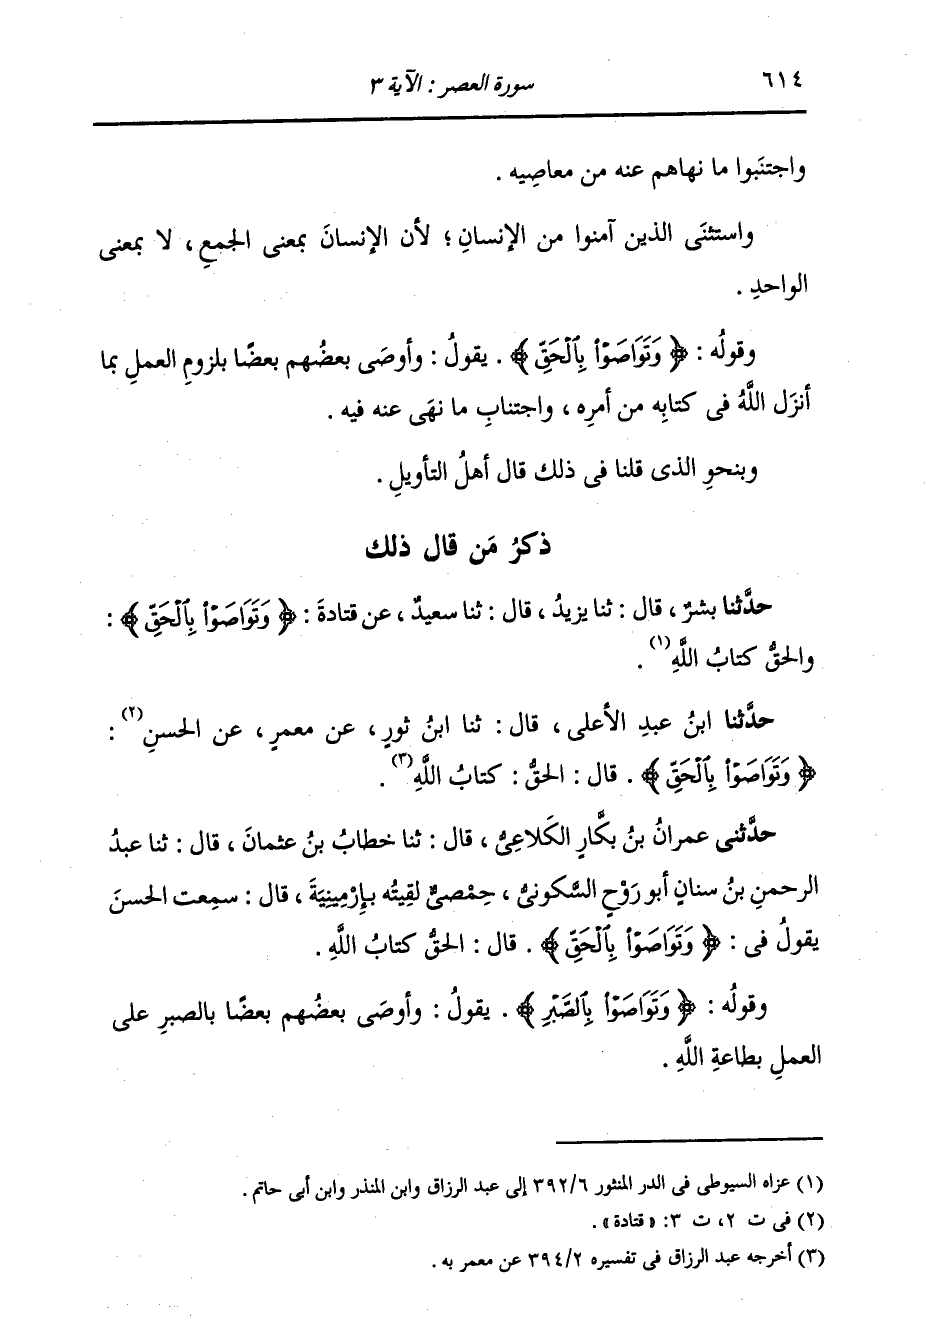 ٦١٤ سورة العصر : الآية ٣
واجتنَبوا ما نهاهم عنه من معاصِيه .
واستثنَى الذين آمنوا من الإنسانِ ؛ لأن الإنسانَ بمعنى الجمعِ ، لا بمعنى
الواحدِ .
وقولُه : ﴿ وَتَوَاصَوْا۟ بِٱلْحَقِّ ﴾ . يقولُ : وأوصَى بعضُهم بعضًا بلزومِ العملِ بما
أنزَل اللَّهُ فى كتابِه من أمرِه ، واجتنابِ ما نهَى عنه فيه .
وبنحوِ الذى قلنا فى ذلك قال أهلُ التأويلِ .
ذكرُ مَن قال ذلك
حدَّثنا بشرٌ ، قال : ثنا يزيدُ ، قال : ثنا سعيدٌ ، عن قتادةَ : ﴿ وَتَوَاصَوْا۟ بِٱلْحَقِّ ﴾ :
والحقُّ كتابُ اللَّهِ(١) .
حدَّثنا ابنُ عبدِ الأعلى ، قال : ثنا ابنُ ثورٍ ، عن معمرٍ ، عن الحسنِ(٢) :
﴿ وَتَوَاصَوْا۟ بِٱلْحَقِّ ﴾ . قال : الحقُّ : كتابُ اللَّهِ(٣) .
حدَّثنى عمرانُ بنُ بكَّارٍ الكَلَاعِىُّ ، قال : ثنا خطابُ بنُ عثمانَ ، قال : ثنا عبدُ
الرحمنِ بنُ سنانٍ أبو رَوْحٍ السَّكونىُّ ، حِمْصىٌّ لقِيتُه بإِرْمِينِيَةَ ، قال : سمِعت الحسنَ
يقولُ فى : ﴿ وَتَوَاصَوْا۟ بِٱلْحَقِّ ﴾ . قال : الحقُّ كتابُ اللَّهِ .
وقولُه : ﴿ وَتَوَاصَوْا۟ بِٱلصَّبْرِ ﴾ . يقولُ : وأوصَى بعضُهم بعضًا بالصبرِ على
العملِ بطاعةِ اللَّهِ .
(١) عزاه السيوطى فى الدر المنثور ٣٩٢/٦ إلى عبد الرزاق وابن المنذر وابن أبى حاتم .
(٢) فى ت ٢، ت ٣: « قتادة » .
(٣) أخرجه عبد الرزاق فى تفسيره ٣٩٤/٢ عن معمر به .